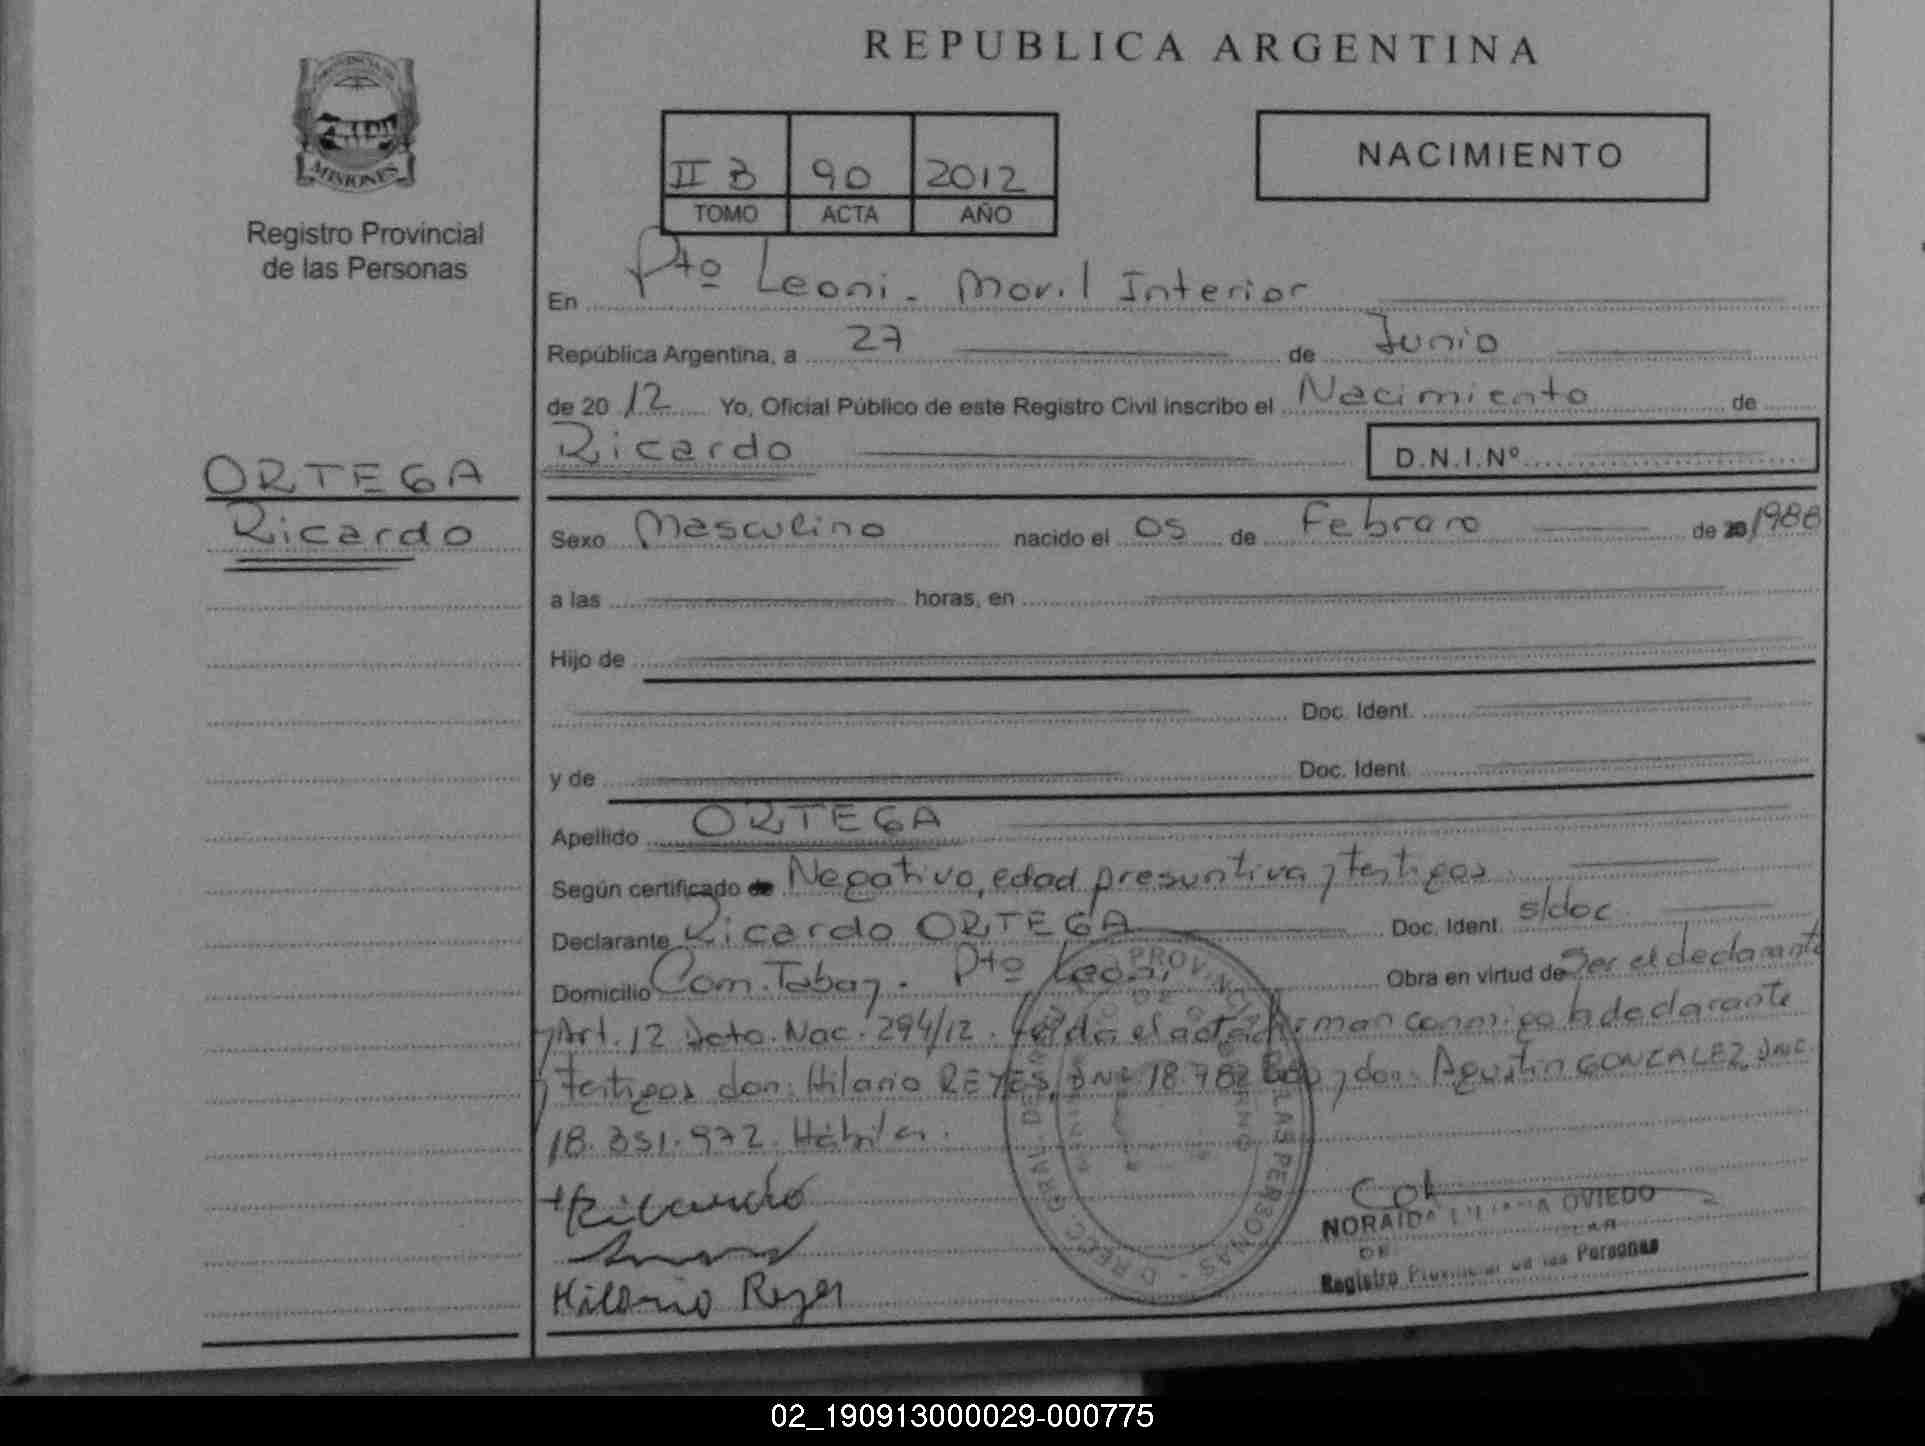 REPUBLICA ARGENTINA
MISIONES
Registro Provincial
de las Personas
II B 90 2012
TOMO ACTA AÑO
NACIMIENTO
En Pto Leoni - Movil Interior
República Argentina, a 27 de Junio
de 20 12 Yo, Oficial Público de este Registro Civil inscribo el Nacimiento de
Ricardo D.N.I.Nº
ORTEGA
Ricardo
Sexo Masculino nacido el 05 de Febrero de 1988
a las horas, en
Hijo de
Doc. Ident.
y de Doc. Ident.
Apellido ORTEGA
Según certificado de Negativo, edad presuntiva y testigos
Declarante Ricardo ORTEGA Doc. Ident. s/doc
Domicilio Com. Tabay. Pto Leoni Obra en virtud de Ser el declarante
y Art. 12 Dcto. Nac. 294/12. Leída el acta firman conmigo la declarante
y testigos don: Hilario REYES, DNI 18.782 y don: Agustin GONZALEZ, DNI
18.351.972. Hábiles.
Ricardo
Hilario Reyes
PROVINCIA DE LAS PERSONAS
NORAIDA OVIEDO
DE
Registro Provincial de las Personas
02_190913000029-000775